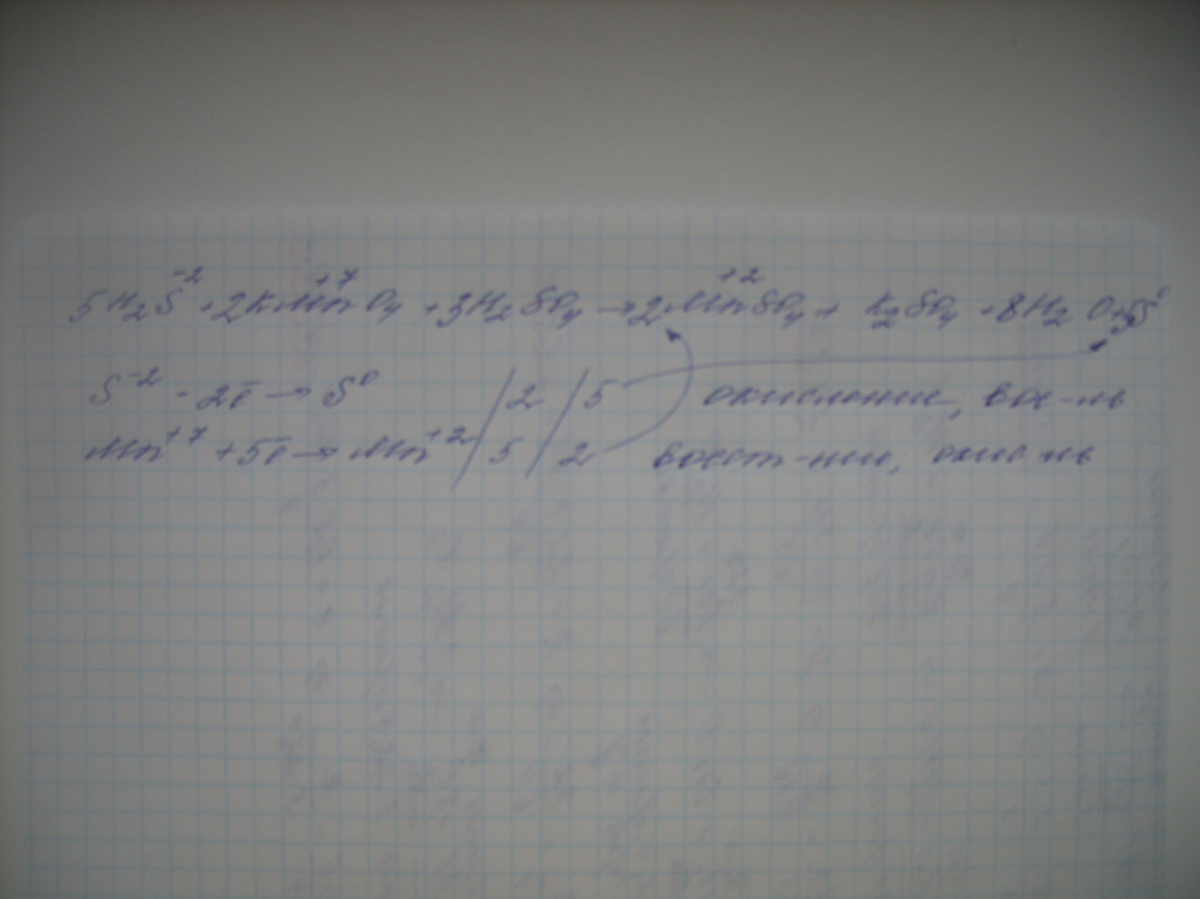 5H₂S⁻² + 2KMn⁺⁷O₄ + 3H₂SO₄ → 2Mn⁺²SO₄ + K₂SO₄ + 8H₂O + 5S⁰
S⁻² - 2ē → S⁰ / 2 / 5 окисление, вос-ль
Mn⁺⁷ + 5ē → Mn⁺² / 5 / 2 восст-ние, окис-ль